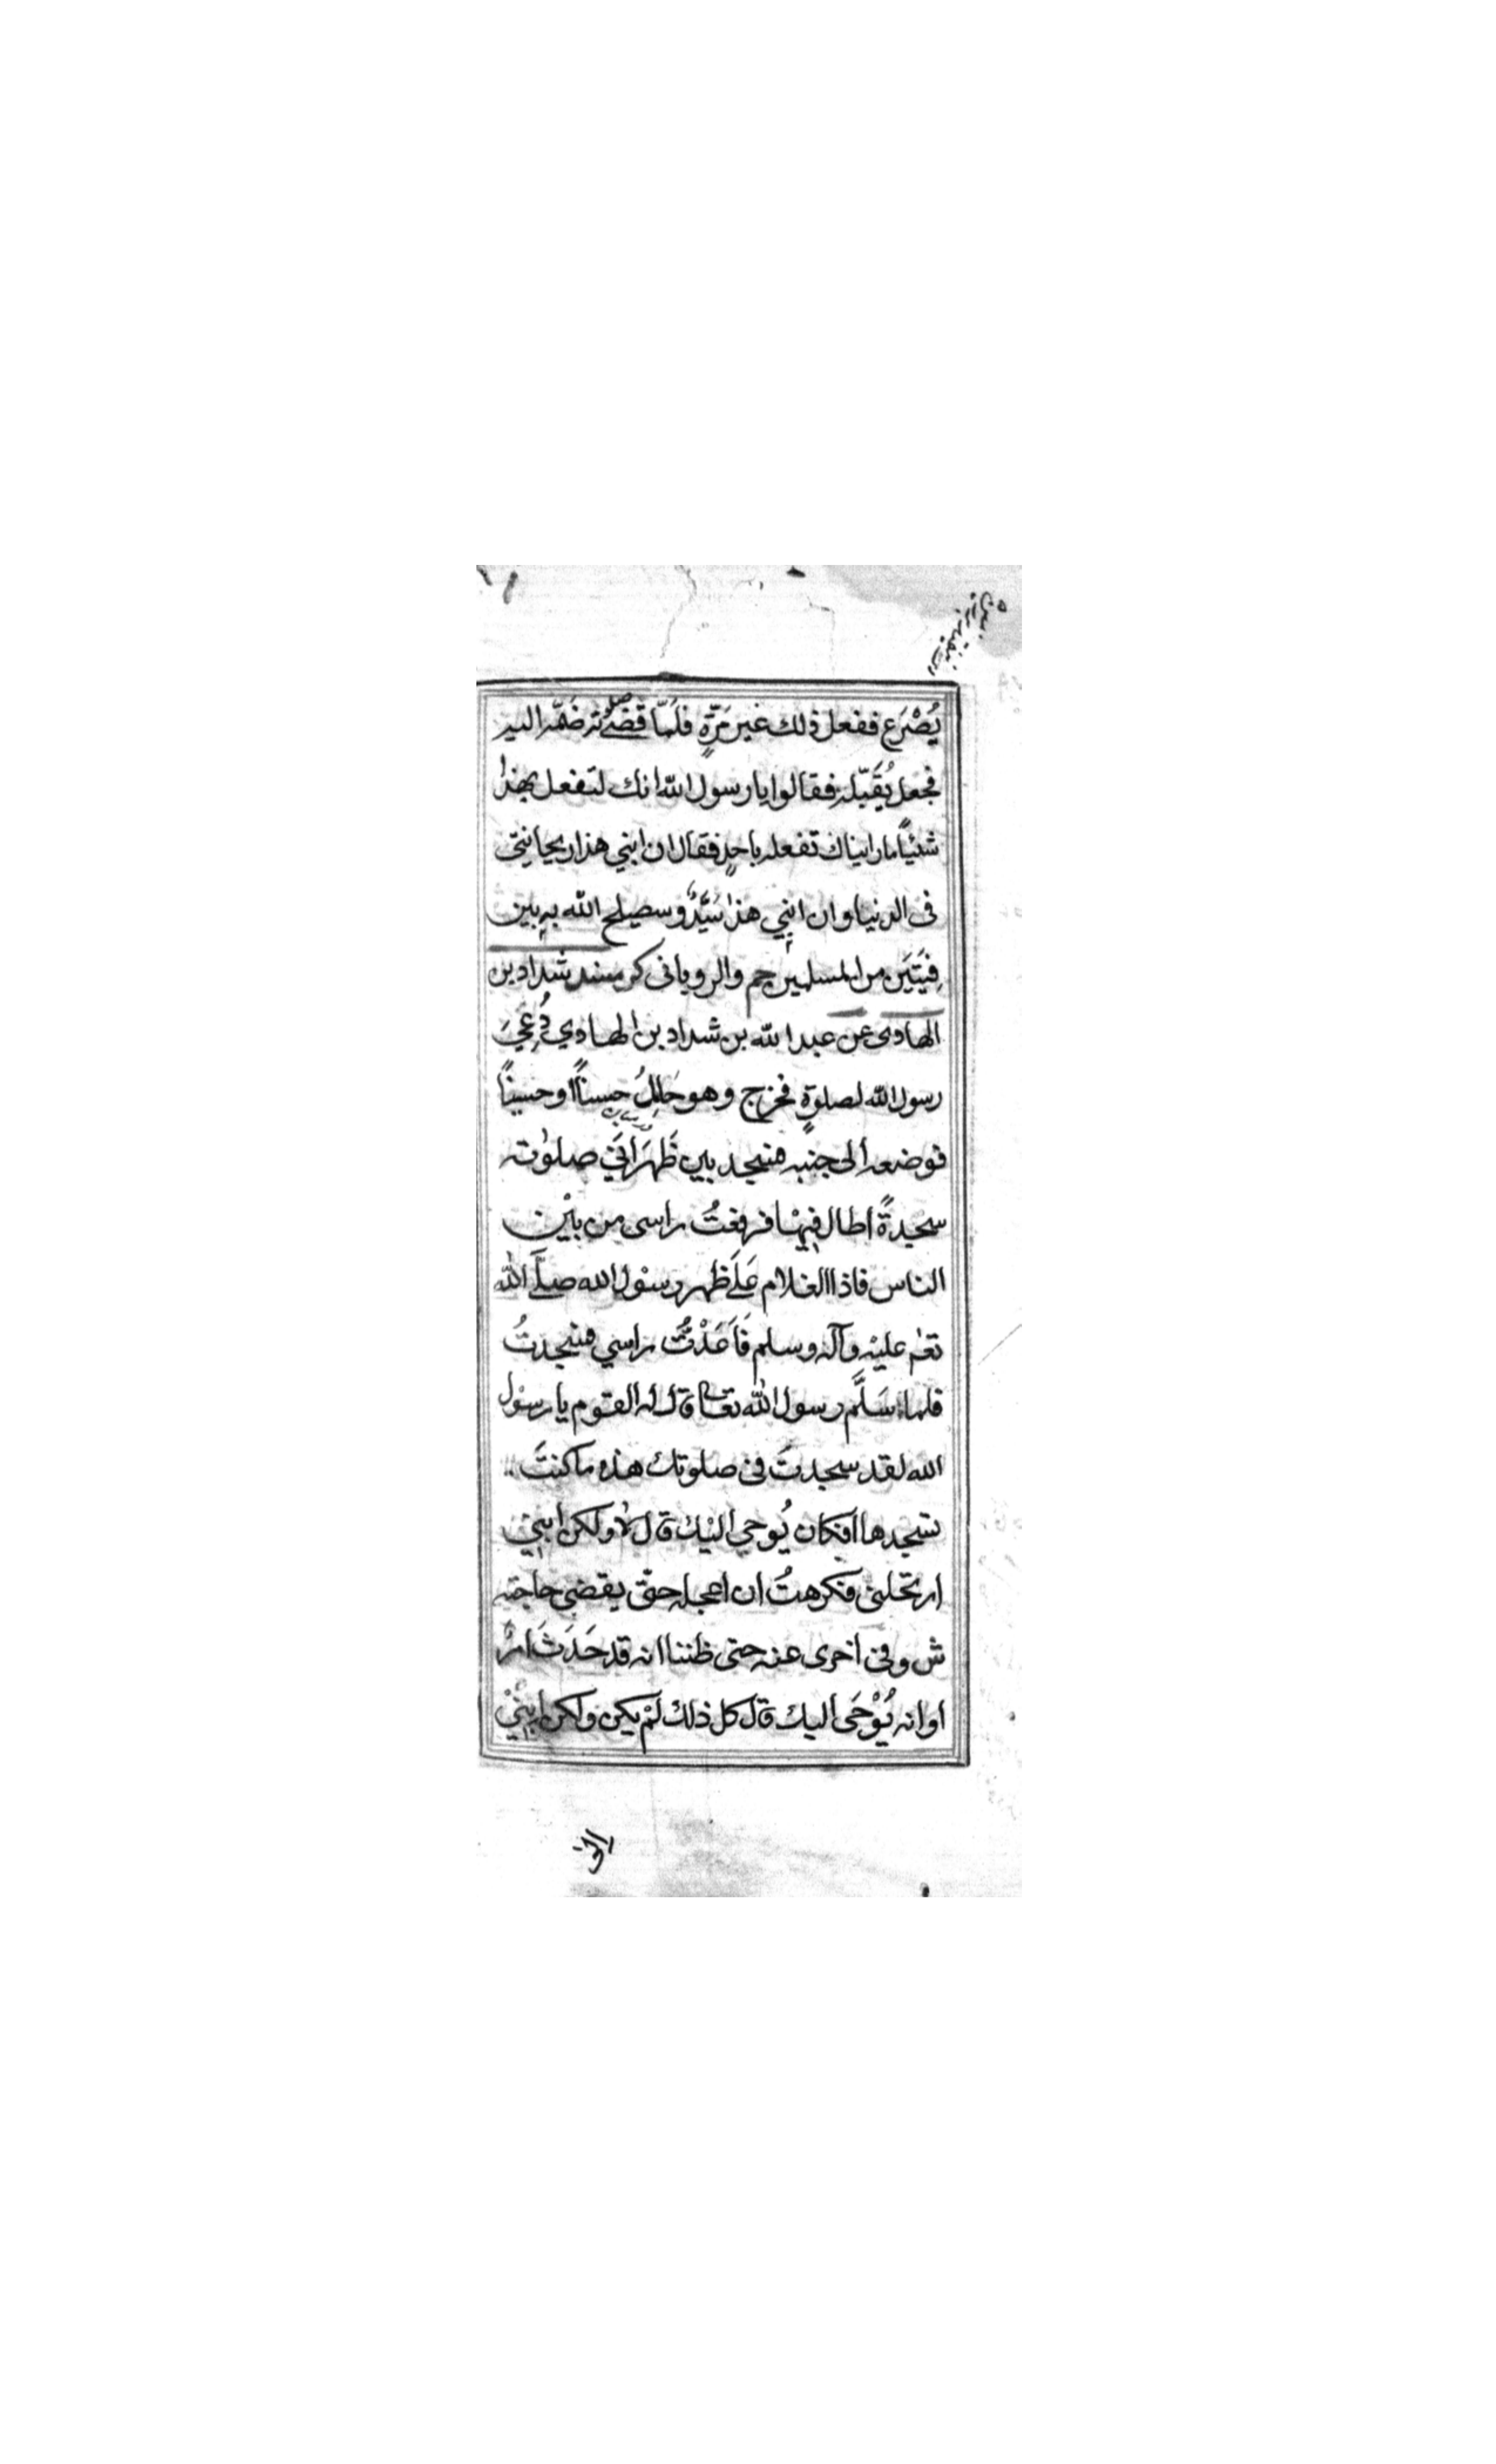 يُصْرَع ففعل ذلك غير مَرّةٍ فلمّا قضى صلوته ضَمّه اليه
فجعل يُقَبّله فقالوا يا رسول الله انك لتفعل بهذا
شئياً ما رايناك تفعله باحدٍ فقال ان ابني هذا ريحانتي
فى الدنيا وان ابني هذا سَيّدٌ وسيصلح الله به بين
فِيَتَين من المسلمين حم والرويانى كر مسند شداد بن
الهادى عن عبد الله بن شداد بن الهادي دُعِيَ
رسول الله لصلوةٍ فخرج وهو حَامِلُ حسناً او حسيناً
فوضعه الى جنبه فسجد بين ظَهرَانَي صلوته
سجدةً اطال فيها فرفعتُ راسى من بيْن
الناس فاذا الغلام عَلَے ظهر رسوْل الله صلّے الله
تعم عليْه وآله وسلم فَاَعَدْتُ راسي فسجدتُ
فلما سَلَّم رسول الله تعا قال له القوم يا رسوْل
الله لقد سجدتَ فى صلوتك هذه ما كنتَ
تسجدها افكان يُوحي اليْك قال لا ولكن ابني
ارتحلنى فكرهتُ ان اعجله حتى يقضى حاجته
ش وفى اخرى عنه حتى ظننا انه قد حَدَثَ امرٌ
او انه يُوْحَى اليك قال كل ذلك لمْ يكن ولكن ابنيْ